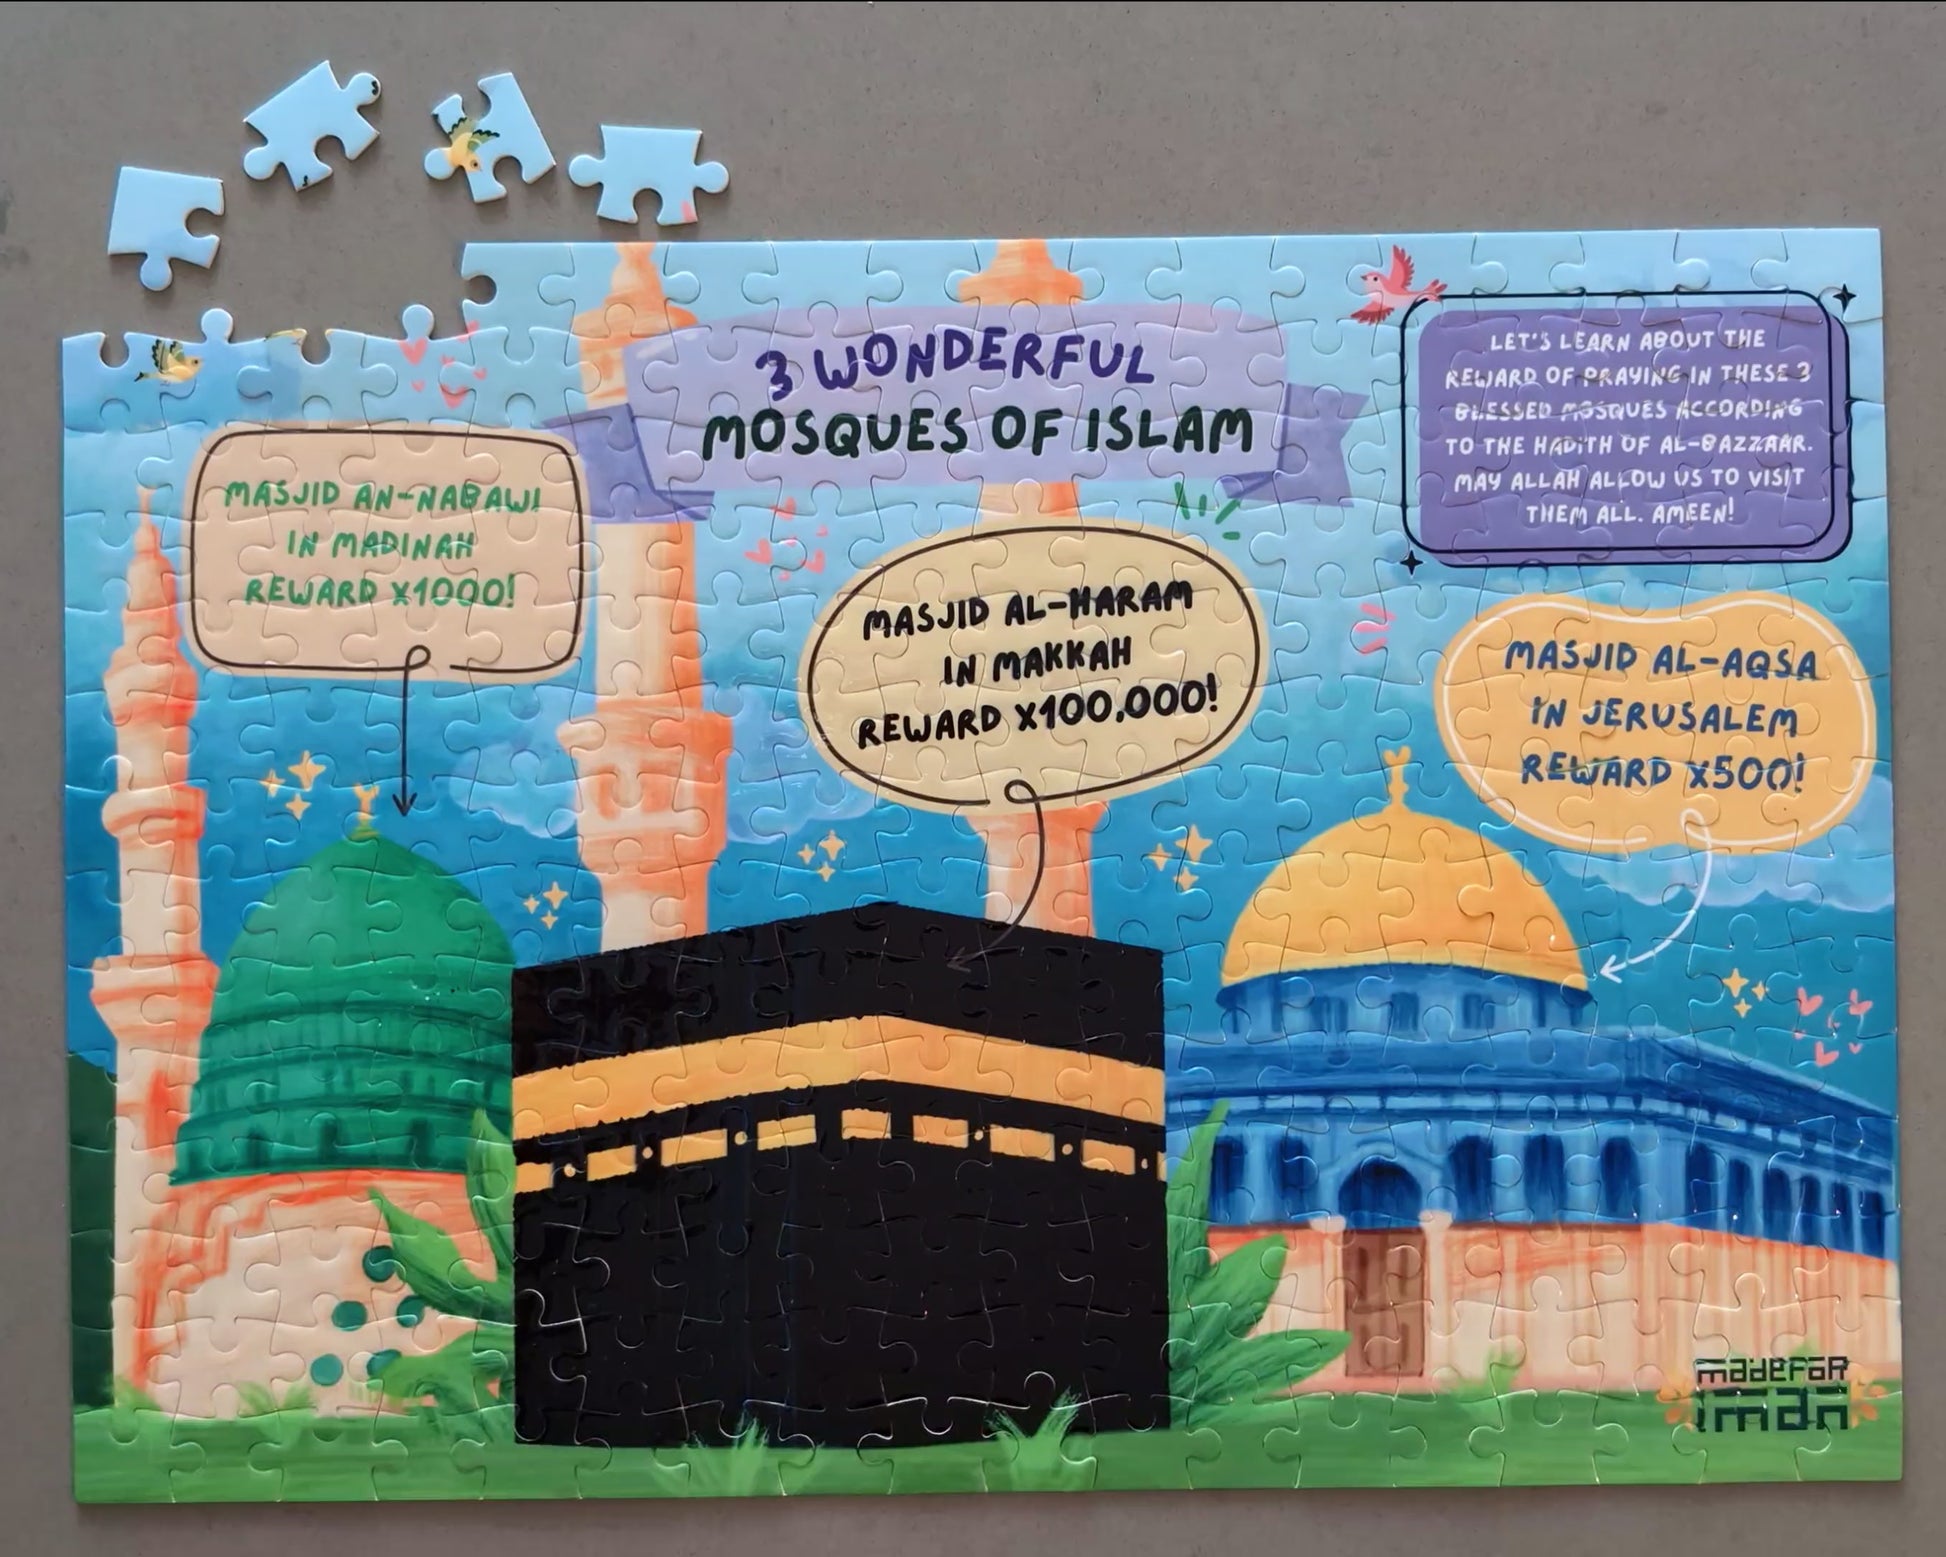 3 WONDERFUL
MOSQUES OF ISLAM
LET'S LEARN ABOUT THE
REWARD OF PRAYING IN THESE 3
BLESSED MOSQUES ACCORDING
TO THE HADITH OF AL-BAZZAAR.
MAY ALLAH ALLOW US TO VISIT
THEM ALL. AMEEN!
MASJID AN-NABAWI
IN MADINAH
REWARD X1000!
MASJID AL-HARAM
IN MAKKAH
REWARD X100,000!
MASJID AL-AQSA
IN JERUSALEM
REWARD X500!
madeFAR
iman